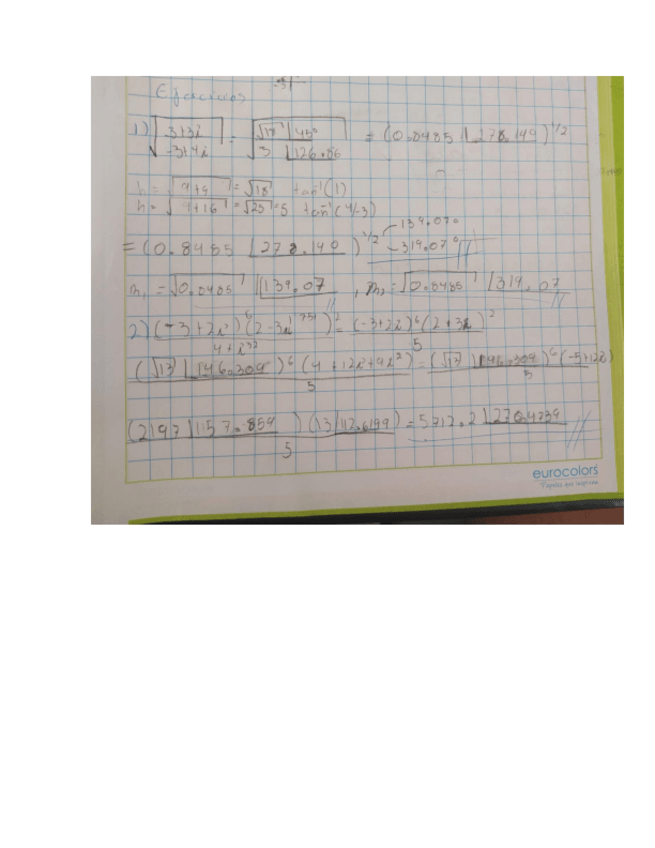 Ejercicios
1) √(3+3i / -3+4i) = √(√18 ∠45° / 5 ∠126.86) = (0.8485 ∠278.149)^1/2
h = √(9+9) = √18 tan⁻¹(1)
h = √(9+16) = √25 = 5 tan⁻¹(4/-3)
139.07°
= (0.8485 ∠278.140)^1/2 319.07°
m₁ = √0.8485 ∠139.07, m₂ = √0.8485 ∠319.07
2) (-3+2i)^6 (2-3i^751)^2 / 4+i^32 = (-3+2i)^6 (2+3i)^2 / 5
(√13 ∠146.309)^6 (4+12i+9i²) / 5 = (√13 ∠146.309)^6 (-5+12i) / 5
(2197 ∠157.859) (13 ∠112.6199) / 5 = 5712.2 ∠270.4739
eurocolors